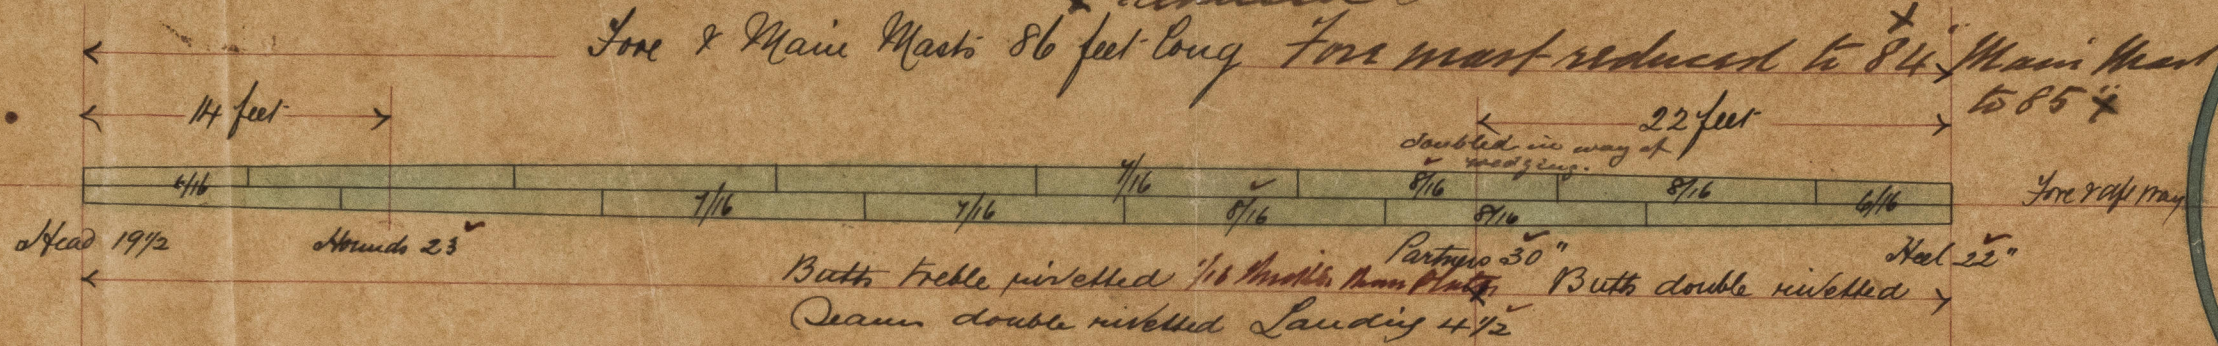 Fore & Main Masts 86 feet long Fore mast reduced to 84" Main Mast
to 85"
14 feet
22 feet
doubled in way of
wedging.
6/16
7/16
8/16
8/16
6/16
7/16
7/16
8/16
8/16
Fore & aft way
Head 19 1/2
Hounds 23
Partners 30"
Heel 22"
Butts treble rivetted 1/16 thicker than Plates Butts double rivetted
Seams double rivetted Landing 4 1/2